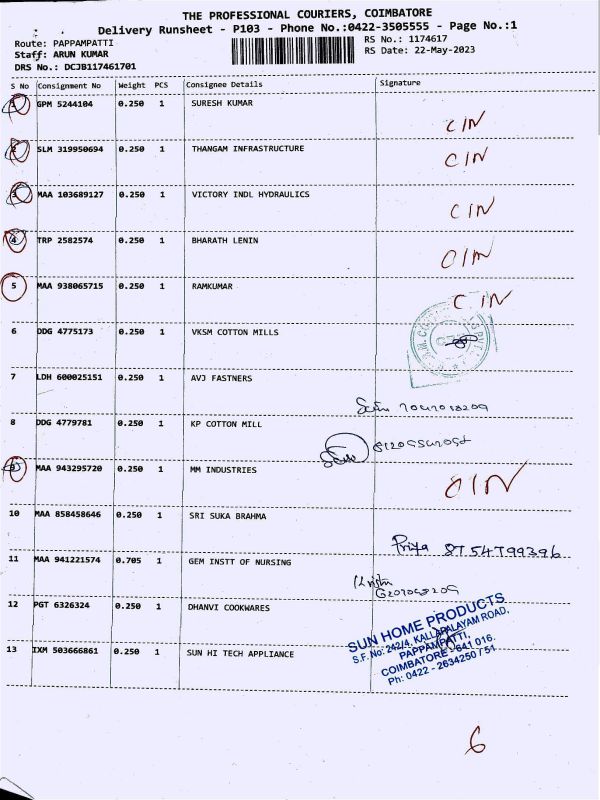 THE PROFESSIONAL COURIERS, COIMBATORE
Delivery Runsheet - P103 - Phone No.:0422-3505555 - Page No.:1
Route: PAPPAMPATTI RS No.: 1174617
Staff: ARUN KUMAR RS Date: 22-May-2023
DRS No.: DCJB117461701
S No Consignment No Weight PCS Consignee Details Signature
1 GPM 5244104 0.250 1 SURESH KUMAR
CIN
2 SLM 319950694 0.250 1 THANGAM INFRASTRUCTURE
CIN
3 MAA 103689127 0.250 1 VICTORY INDL HYDRAULICS
CIN
4 TRP 2582574 0.250 1 BHARATH LENIN
CIN
5 MAA 938065715 0.250 1 RAMKUMAR
CIN
6 DDG 4775173 0.250 1 VKSM COTTON MILLS
7 LDH 600025151 0.250 1 AVJ FASTNERS
8 DDG 4779781 0.250 1 KP COTTON MILL
9 MAA 943295720 0.250 1 MM INDUSTRIES
CIN
10 MAA 858458646 0.250 1 SRI SUKA BRAHMA
Priya 8754799396
11 MAA 941221574 0.705 1 GEM INSTT OF NURSING
12 PGT 6326324 0.250 1 DHANVI COOKWARES
SUN HOME PRODUCTS
S.F. No: 242/4, KALLAPALAYAM ROAD,
PAPPAMPATTI,
COIMBATORE - 641 016.
Ph: 0422 - 2634250 / 51
13 IXM 503666861 0.250 1 SUN HI TECH APPLIANCE
6